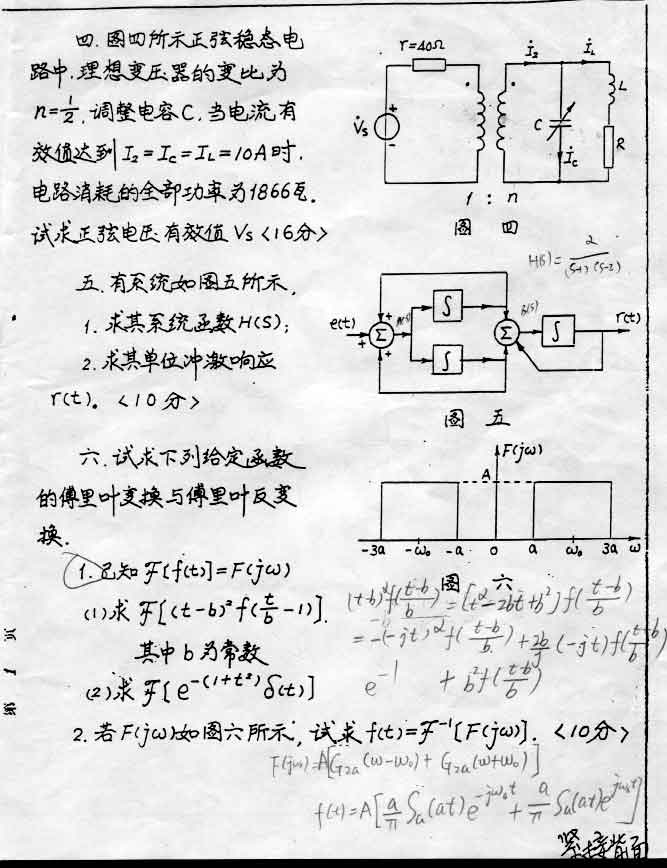 四.图四所示正弦稳态电
路中,理想变压器的变比为
n=1/2,调整电容C,当电流有
效值达到 I₂=Ic=IL=10A时,
电路消耗的全部功率为1866瓦.
试求正弦电压有效值 Vs <16分>
r=40Ω
İ₂
İL
L
C
R
V̇s
+
-
İc
1 : n
图 四
五.有系统如图五所示,
1. 求其系统函数H(S);
2. 求其单位冲激响应
r(t)。 <10分>
H(s)= 2/((s+1)(s-2))
e(t)
+
+
+
Σ
∫
∫
Σ
∫
r(t)
图 五
六.试求下列给定函数
的傅里叶变换与傅里叶反变
换.
F(jω)
A
-3a -ω₀ -a 0 a ω₀ 3a ω
图 六
1. 已知 ℱ[f(t)]=F(jω)
(1)求 ℱ[(t-b)²f(t/b-1)].
其中b为常数
(2)求 ℱ[e^-(1+t²) δ(t)]
(t-b)²f((t-b)/b)=[t²-2bt+b²]f((t-b)/b)
=-(-jt)²f((t-b)/b)+2b/j(-jt)f((t-b)/b)
+b²f((t-b)/b)
e⁻¹
2. 若F(jω)如图六所示,试求f(t)=ℱ⁻¹[F(jω)]. <10分>
F(jω)=A[G₂ₐ(ω-ω₀)+G₂ₐ(ω+ω₀)]
f(t)=A[a/π Sa(at)e^-jω₀t + a/π Sa(at)e^jω₀t]
第 1 页
紧接背面